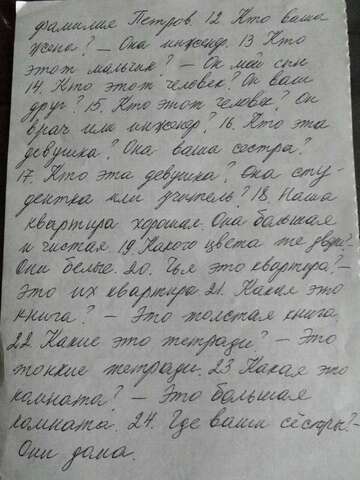 фамилия Петров. 12. Кто ваша
жена? – Она инженер. 13. Кто
этот мальчик? – Он мой сын
14. Кто этот человек? Он ваш
друг? 15. Кто этот человек? Он
врач или инженер? 16. Кто эта
девушка? Она ваша сестра?
17. Кто эта девушка? Она сту-
дентка или учитель? 18. Наша
квартира хорошая. Она большая
и чистая. 19. Какого цвета те двери?
Они белые. 20. Чья это квартира? –
Это их квартира. 21. Какая это
книга? – Это толстая книга.
22. Какие это тетради? – Это
тонкие тетради. 23. Какая это
комната? – Это большая
комната. 24. Где ваши сёстры? –
Они дома.